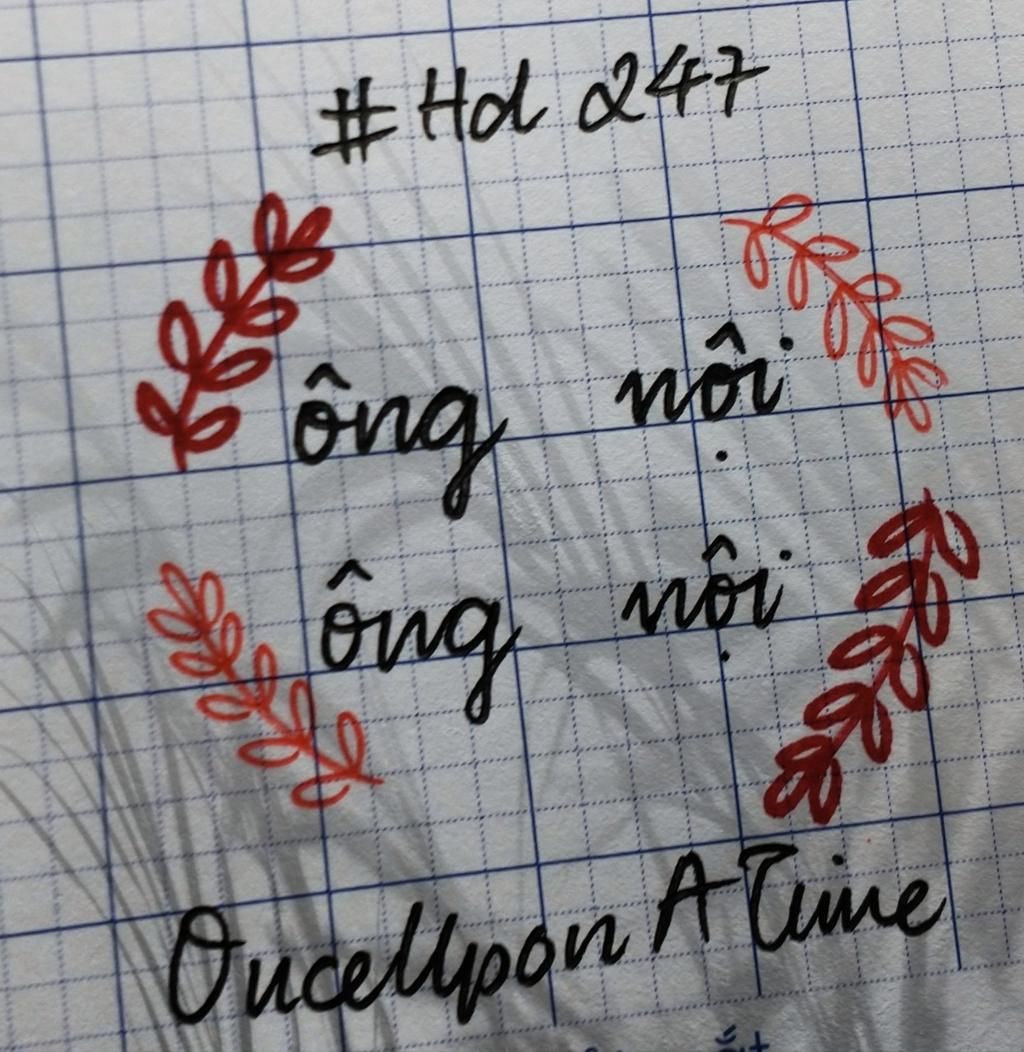 #Hd 247
ông nội
ông nội
OnceUpon A Time